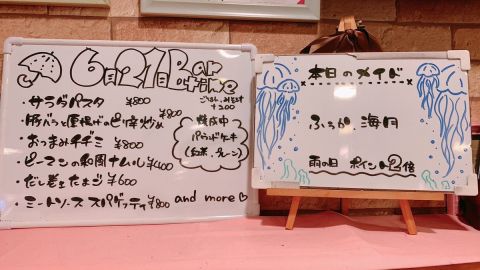 6月21日 Bar time
ごはん、みそ汁
+200
・サラダパスタ ¥800
・豚バラと厚揚げのピリ辛炒め ¥800
・おつまみチヂミ ¥800
・ピーマンの和風ナムル ¥400
・だし巻きたまご ¥600
・ミートソーススパゲッティ ¥800 and more
焼成中
パウンドケーキ
(紅茶、プレーン)
本日のメイド
海月
雨の日 ポイント2倍